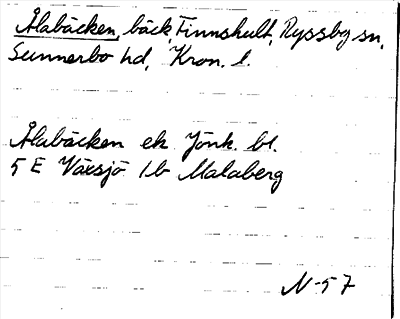 Ålabäcken, bäck, Finnshult, Ryssby sn,
Sunnerbo hd, Kron. l.
Ålabäcken ek Jönk. bl.
5 E Växsjö 1b Malaberg
N-57